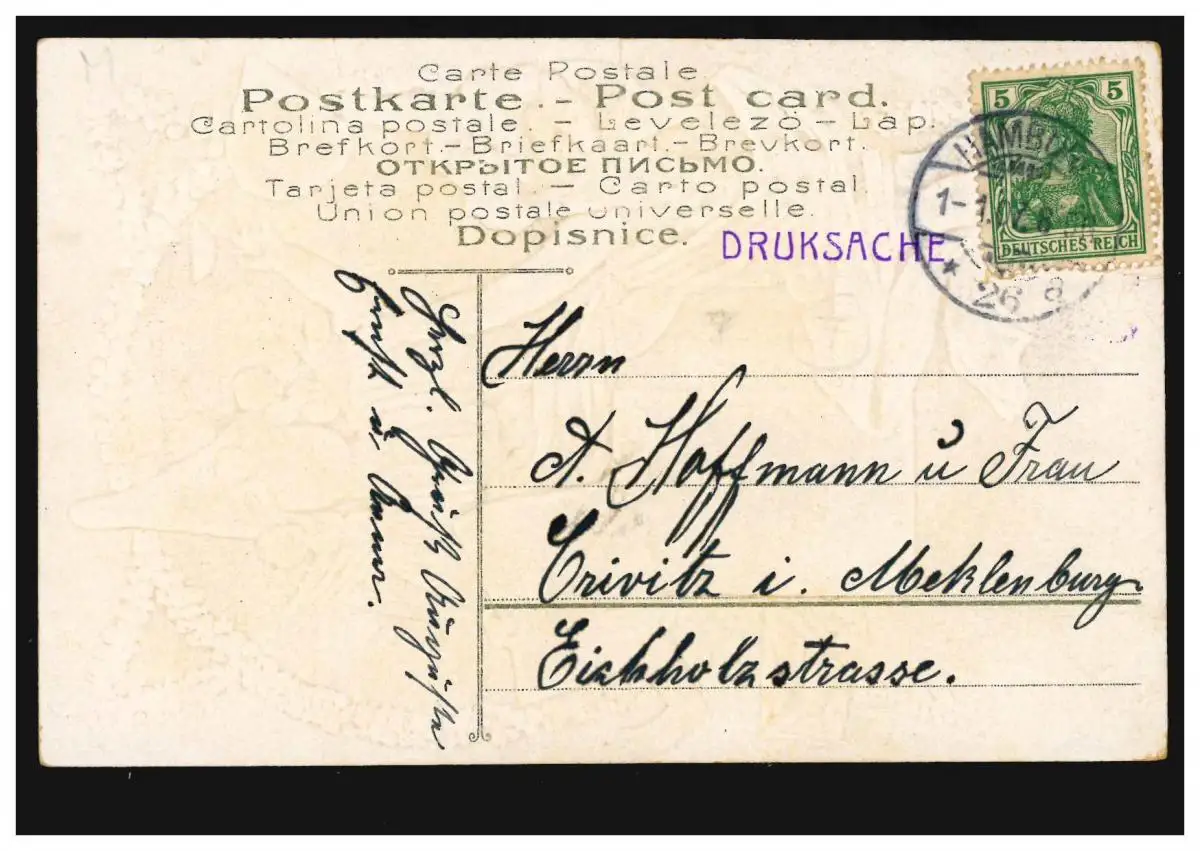 Carte Postale
Postkarte. - Post card.
Cartolina postale. - Levelező - Lap.
Brefkort. - Briefkaart. - Brevkort.
ОТКРЫТОЕ ПИСЬМО.
Tarjeta postal. - Carto postal.
Union postale universelle.
Dopisnice.
DRUKSACHE
5 5
DEUTSCHES REICH
HAMBU
1-1.
* 26 a
Herrn
A. Hoffmann u Frau
Crivitz i. Meklenburg.
Eichholzstrasse.
Herzl.